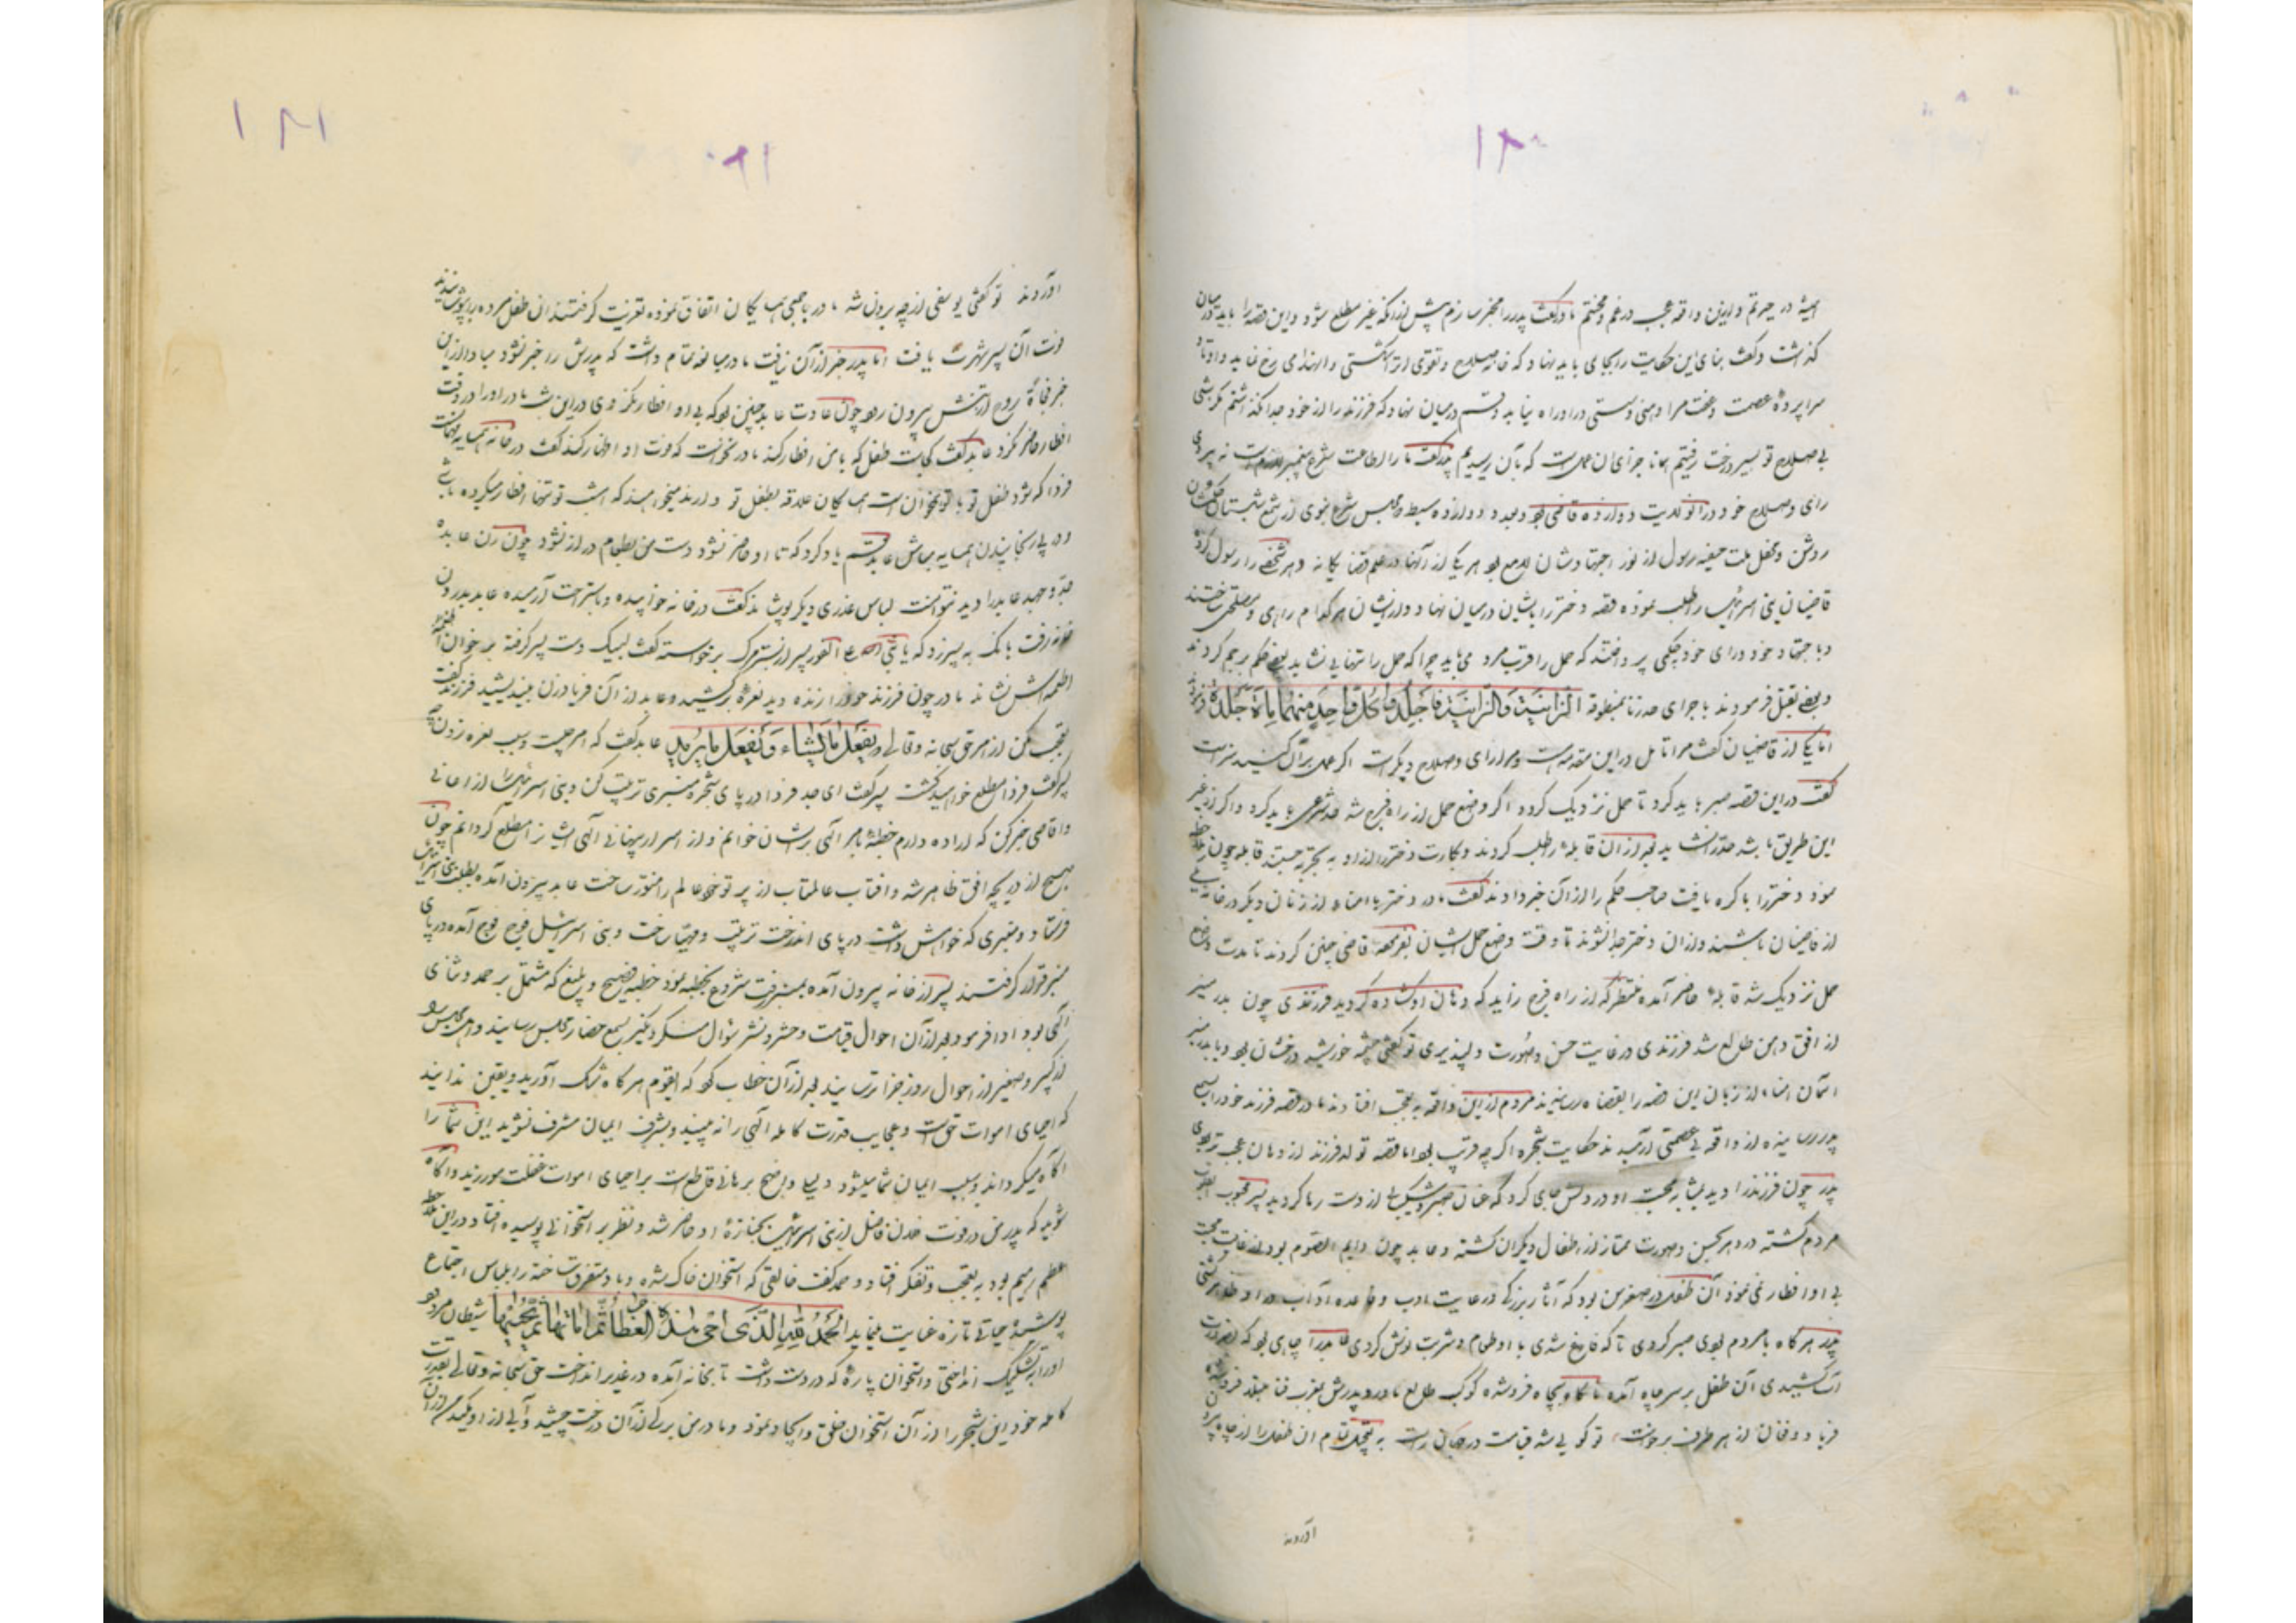 ۱۸۰
در حیرتم و ازین واقعه عجب در غم و محنتم مادر گفت پدر را مخبر سازم پیش از آنکه غیر مطلع شود و این قصه را باید در میان
گذاشت و گفت بنای این حکایت را بجای باید نهاد که خانه صلاح و تقوی از آن شکستی و انهدامی رخ ننماید
سراپرده عصمت و عفت مرا وهنی و سستی در او راه نیابد و قسم در میان نهاد که فرزند را از خود جدا نگذاشتم مگر شبی
بی صلاح تو بسیر درخت رفتیم همانا جزای آن عمل است که بآن رسیدیم پدر گفت ما را اطاعت شرع پیغمبر لازم است نه پیروی
رای و صلاح خود در آن ولایت دوازده قاضی بود و مجلس شرع نبوی از شمع شبستان
روشن و محفل ملت حنیفه رسول از نور اجتهادشان لامع بود هر یکی از آنها در علم قضا یگانه دهر شخصی را رسول کرد
قاضیان بنی اسرائیل را طلب نموده قصه دختر را بایشان در میان نهاد و از ایشان هر کدام راهی و مصلحتی ساختند
و باجتهاد خود و رای خود بحکمی پرداختند که حمل را قرب مرد می باید چرا که حمل را تنهایی نشاید بعضی حکم برجم کردند
و بعضی بقتل فرمودند باجرای حد زنا بمنطوقه الزانیة والزانی فاجلدوا کل واحد منهما مایة جلدة
اما یکی از قاضیان گفت مرا تامل در این مقدمه است و مرا رای و صلاح دیگر است اگر عمل بر آن کنید
گفت در این قصه صبر باید کرد تا حمل نزدیک گردد اگر وضع حمل از راه فرج شد حد شرعی باید کرد و اگر از غیر
این طریق باشد حد نشاید بعد از آن قابله را طلب کردند و بکارت دختر را از او به تجربه جستند قابله چون ملاحظه
نمود دختر را باکره یافت صاحب حکم را از آن خبر دادند گفت مادر دختر با امناء از زنان دیگر در خانه یکی
از قاضیان باشند و از آن دختر جدا نشوند تا وقت وضع حمل ایشان بفرموده قاضی چنین کردند تا مدت وضع
حمل نزدیک شد قابله حاضر آمده منتظر که از راه فرج زاید که دهان او گشاده گردید فرزندی چون بدر منیر
از افق دهن طالع شد فرزندی در غایت حسن و صورت دلپذیری تو گفتی چشمه خورشید درخشان بود و یا بدر منیر
آسمان امناء از زنان این قصه را بقضاة رسانیدند مردم از این واقعه به تعجب افتادند مادر قصه فرزند خود را بسمع
پدر رسانیده از واقعه بی عصمتی آرمیدند حکایت شجره اگر چه قریب بود اما قصه تولد فرزند از دهان عجب تر بودی
پدر چون فرزند را دید بمشابه محبت او در دلش جای کرد که عنان صبر و شکیبایی از دست رها گردید پسر محبوب القلوب
مردم گشته در دهر بحسن و صورت ممتاز از اطفال دیگران گشته و عابد چون دایم الصوم بود از غایت محبت
بی او افطار نمی نمود آن طفل در صغر سن بود که آثار بزرگی در رعایت ادب و قاعده آداب در او ظاهر گشتی
پدر هر گاه با مردم بودی صبر کردی تا که فارغ شدی با او طعام و شربت نوش کردی قضا را چاهی بود که
آب کشیدی آن طفل بر سر چاه آمده ناگاه بچاه فرو شد کوکب طالع مادر و پدرش بغرب فنا فرو شد
فریاد و فغان از هر طرف برخواست تو گویی شد قیامت در جهان راست به تعجیل تمام آن طفل را از چاه بیرون
آوردند
۱۸۱
۱۸۱
آوردند تو گفتی یوسفی از چه برون شد مادر با جمعی همسایگان اتفاق نموده تعزیت گرفتند آن طفل مرده را پوشانیدند
فوت آن پسر شهرت یافت اما پدر خبر از آن نیافت مادر مبالغه تمام داشت که پدرش را خبر نشود مبادا از این
خبر فجاءة روح از تنش بیرون رود چون عادت عابد چنین بود که بی او افطار نکردی در این شب مادر او را در وقت
افطار حاضر نکرد عابد گفت کجاست طفل که با من افطار کند مادر نخواست که فوت او اظهار کند گفت در خانه همسایه مهمانست
فردا که شود طفل تو با تو همخوان است همسایگان علاقه بطفل تو دارند میخواهند که امشب تو تنها افطار میکرده باشی
همسایه عابد قسم یاد کرد که تا او حاضر نشود دست من بطعام دراز نشود چون زن عابد
جد و جهد عابد را دید نتوانست لباس عذری دیگر پوشاند گفت در خانه خوابیده و باستراحت آرمیده عابد بدرون
خانه رفت بانگ به پسر زد که یا بنی الفور پسر از بستر مرگ برخواسته گفت لبیک دست پسر گرفته بر خوان
اطعمه اش نشاند مادر چون فرزند خود را زنده دید نعره برکشید و عابد از آن فریاد زن بیندیشید فرزند گفت
تعجب مکن از امر حق سبحانه و تعالی و یفعل ما یشاء و یفعل ما یرید عابد گفت که امر چیست و سبب نعره زدن
پسر گفت فردا مطلع خواهید گشت پسر گفت ای جد فردا در پای شجره منبری ترتیب کن و بنی اسرائیل را از اعالی
و اقاصی خبر کن که اراده دارم خطبه بامر الهی بر ایشان خوانم و از اسرار پنهانی الهی ایشان را مطلع گردانم چون
صبح از دریچه افق ظاهر شد و آفتاب عالمتاب از پرتو خود عالم را منور ساخت عابد بیرون آمده بطلب بنی اسرائیل
فرستاد و منبری که خواهش داشت در پای آن درخت ترتیب و مهیا ساخت و بنی اسرائیل فوج فوج آمده در پای
منبر قرار گرفتند پسر از خانه بیرون آمده بمنبر رفت شروع بخطبه نمود خطبه فصیح و بلیغ که مشتمل بر حمد و ثنای
الهی بود ادا فرمود بعد از آن احوال قیامت و حشر و نشر سؤال منکر و نکیر بسمع حضار مجلس رسانید و اهل مجلس را
از کبیر و صغیر از احوال روز جزا ترسانید بعد از آن خطاب کرد که ایقوم هر گاه شک آورید و یقین ندانید
که احیای اموات حق است و عجایب قدرت کامله الهی را نه بینید و بشرف ایمان مشرف نشوید این شما را
آگاه میگرداند و سبب ایمان شما میشود دلیل واضح برهانی قاطع است بر احیای اموات غفلت مورزید و آگاه
شوید که پدر من در فوت فلان فاضل از بنی اسرائیل بجنازه او حاضر شد و نظر بر استخوانی پوسیده افتاد در این
عظم رمیم بود به تعجب و تفکر افتاد و گفت خالقی که استخوان خاک شده و متفرق ساخته را بلباس اجتماع
پوشیده حیاتی تازه عنایت مینماید الحمد لله الذی احی هذه العظام ثم اماتها ثم یحییها شیطان مردود
او را بتشکیک انداختی و استخوان پاره که در دست داشت تا بخانه آمده در غدیر انداخت حق سبحانه و تعالی بقدرت
کامله خود این شجر را از آن استخوان خلق و ایجاد نمود و مادر من برگی از آن درخت چشید و آبی از او مکید